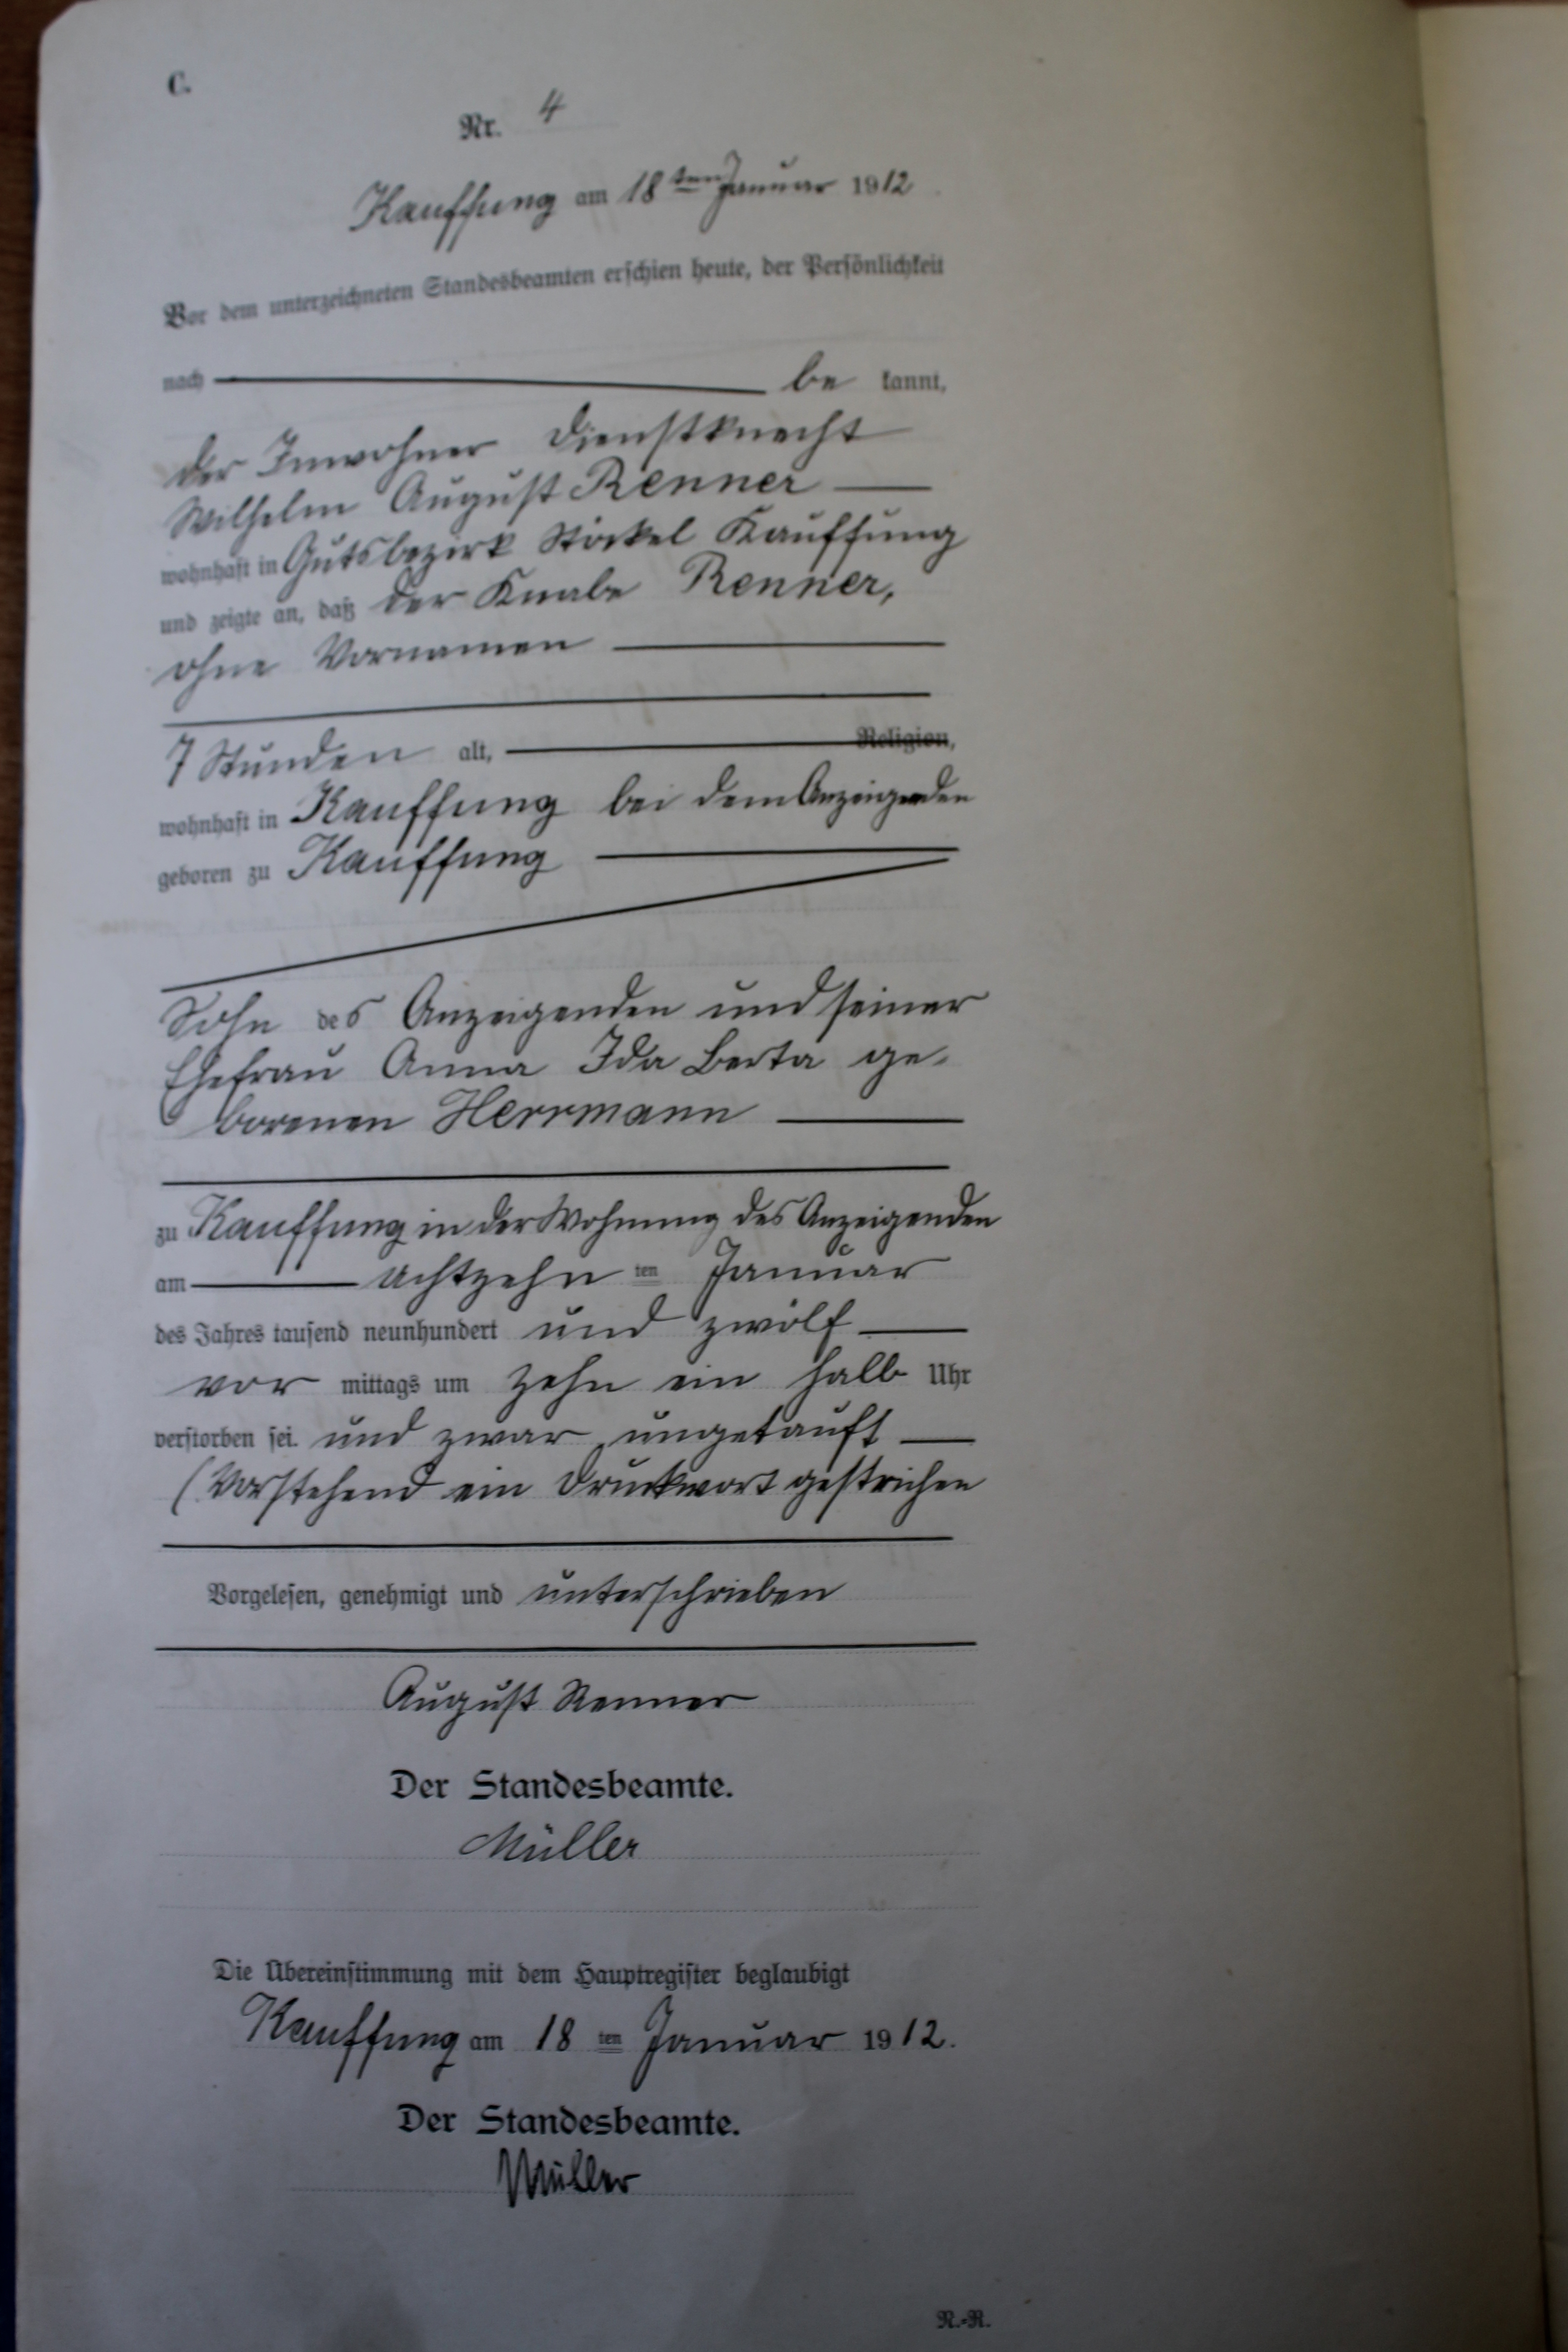 C.
Nr. 4
Kauffung am 18ten Januar 1912
Vor dem unterzeichneten Standesbeamten erschien heute, der Persönlichkeit
nach be kannt,
der Inwohner Dienstknecht
Wilhelm August Renner
wohnhaft in Gutsbezirk Stöckel Kauffung
und zeigte an, daß der Knabe Renner,
ohne Vornamen
7 Stunden alt, Religion,
wohnhaft in Kauffung bei dem Anzeigenden
geboren zu Kauffung
Sohn des Anzeigenden und seiner
Ehefrau Anna Ida Berta ge-
borenen Herrmann
zu Kauffung in der Wohnung des Anzeigenden
am achtzehn ten Januar
des Jahres tausend neunhundert und zwölf
vor mittags um zehn ein halb Uhr
verstorben sei. und zwar ungetauft
(Vorstehend ein Druckwort gestrichen
Vorgelesen, genehmigt und unterschrieben
August Renner
Der Standesbeamte.
Müller
Die Übereinstimmung mit dem Hauptregister beglaubigt
Kauffung am 18 ten Januar 1912.
Der Standesbeamte.
Müller
R.-R.